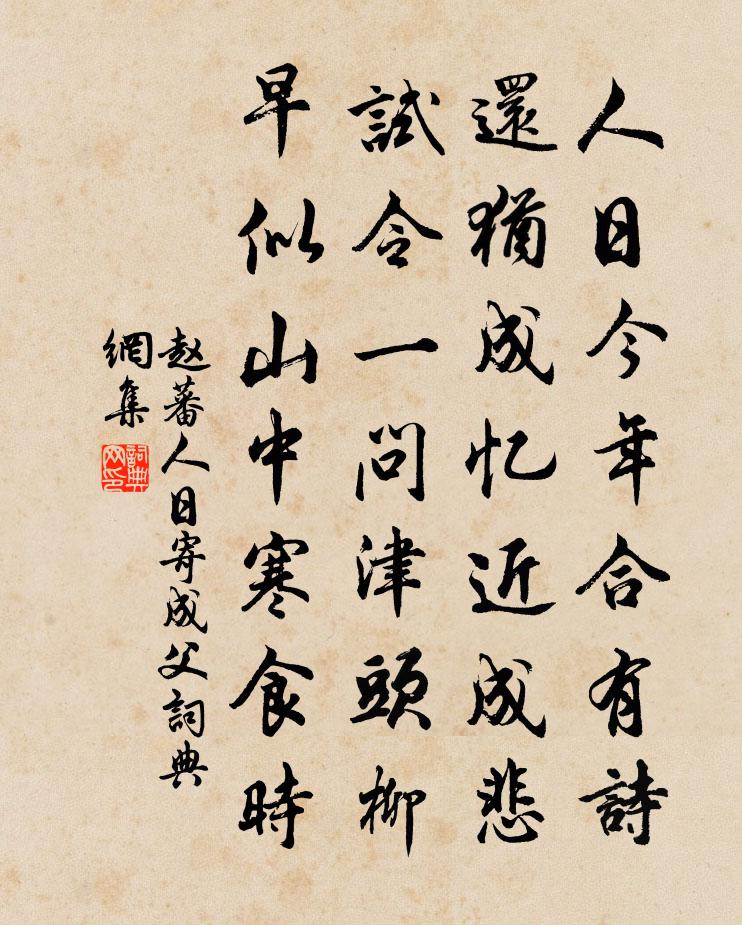 人日今年合有詩
還猶成忆近成悲
試令一問津頭柳
早似山中寒食時
赵蕃人日寄成父詞典
網集
詞典
网印